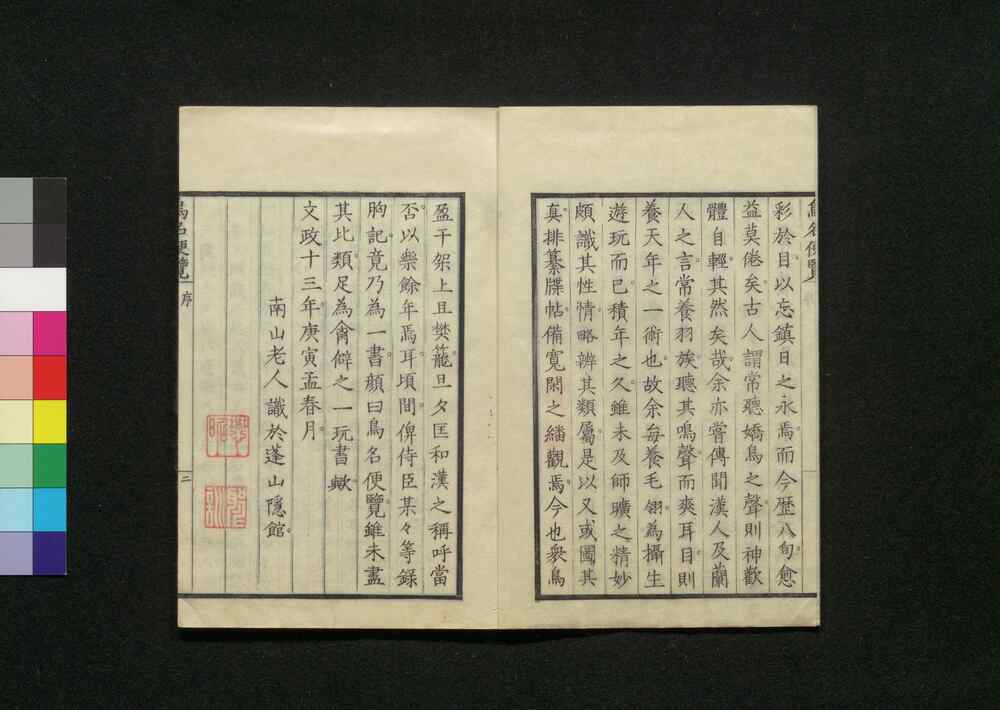 鳥名便覽
彩於目以忘鎮日之永焉而今歷八旬愈
益莫倦矣古人謂常聽嬌鳥之聲則神歡
體自輕其然矣哉余亦嘗傳聞漢人及蘭
人之言常養羽族聽其鳴聲而爽耳目則
養天年之一術也故余每養毛翎為攝生
遊玩而已積年之久雖未及師曠之精妙
頗識其性情略辨其類屬是以又或圖其
真排纂牒帖備寬閑之繙觀焉今也衆鳥
盈千架上且樊籠旦夕匡和漢之稱呼當
否以樂餘年焉耳頃間俾侍臣某々等錄
胸記竟乃為一書顏曰鳥名便覽雖未盡
其比類足為禽僻之一玩書歟
文政十三年庚寅孟春月
南山老人識於蓬山隱館
鳥名便覽 序
二